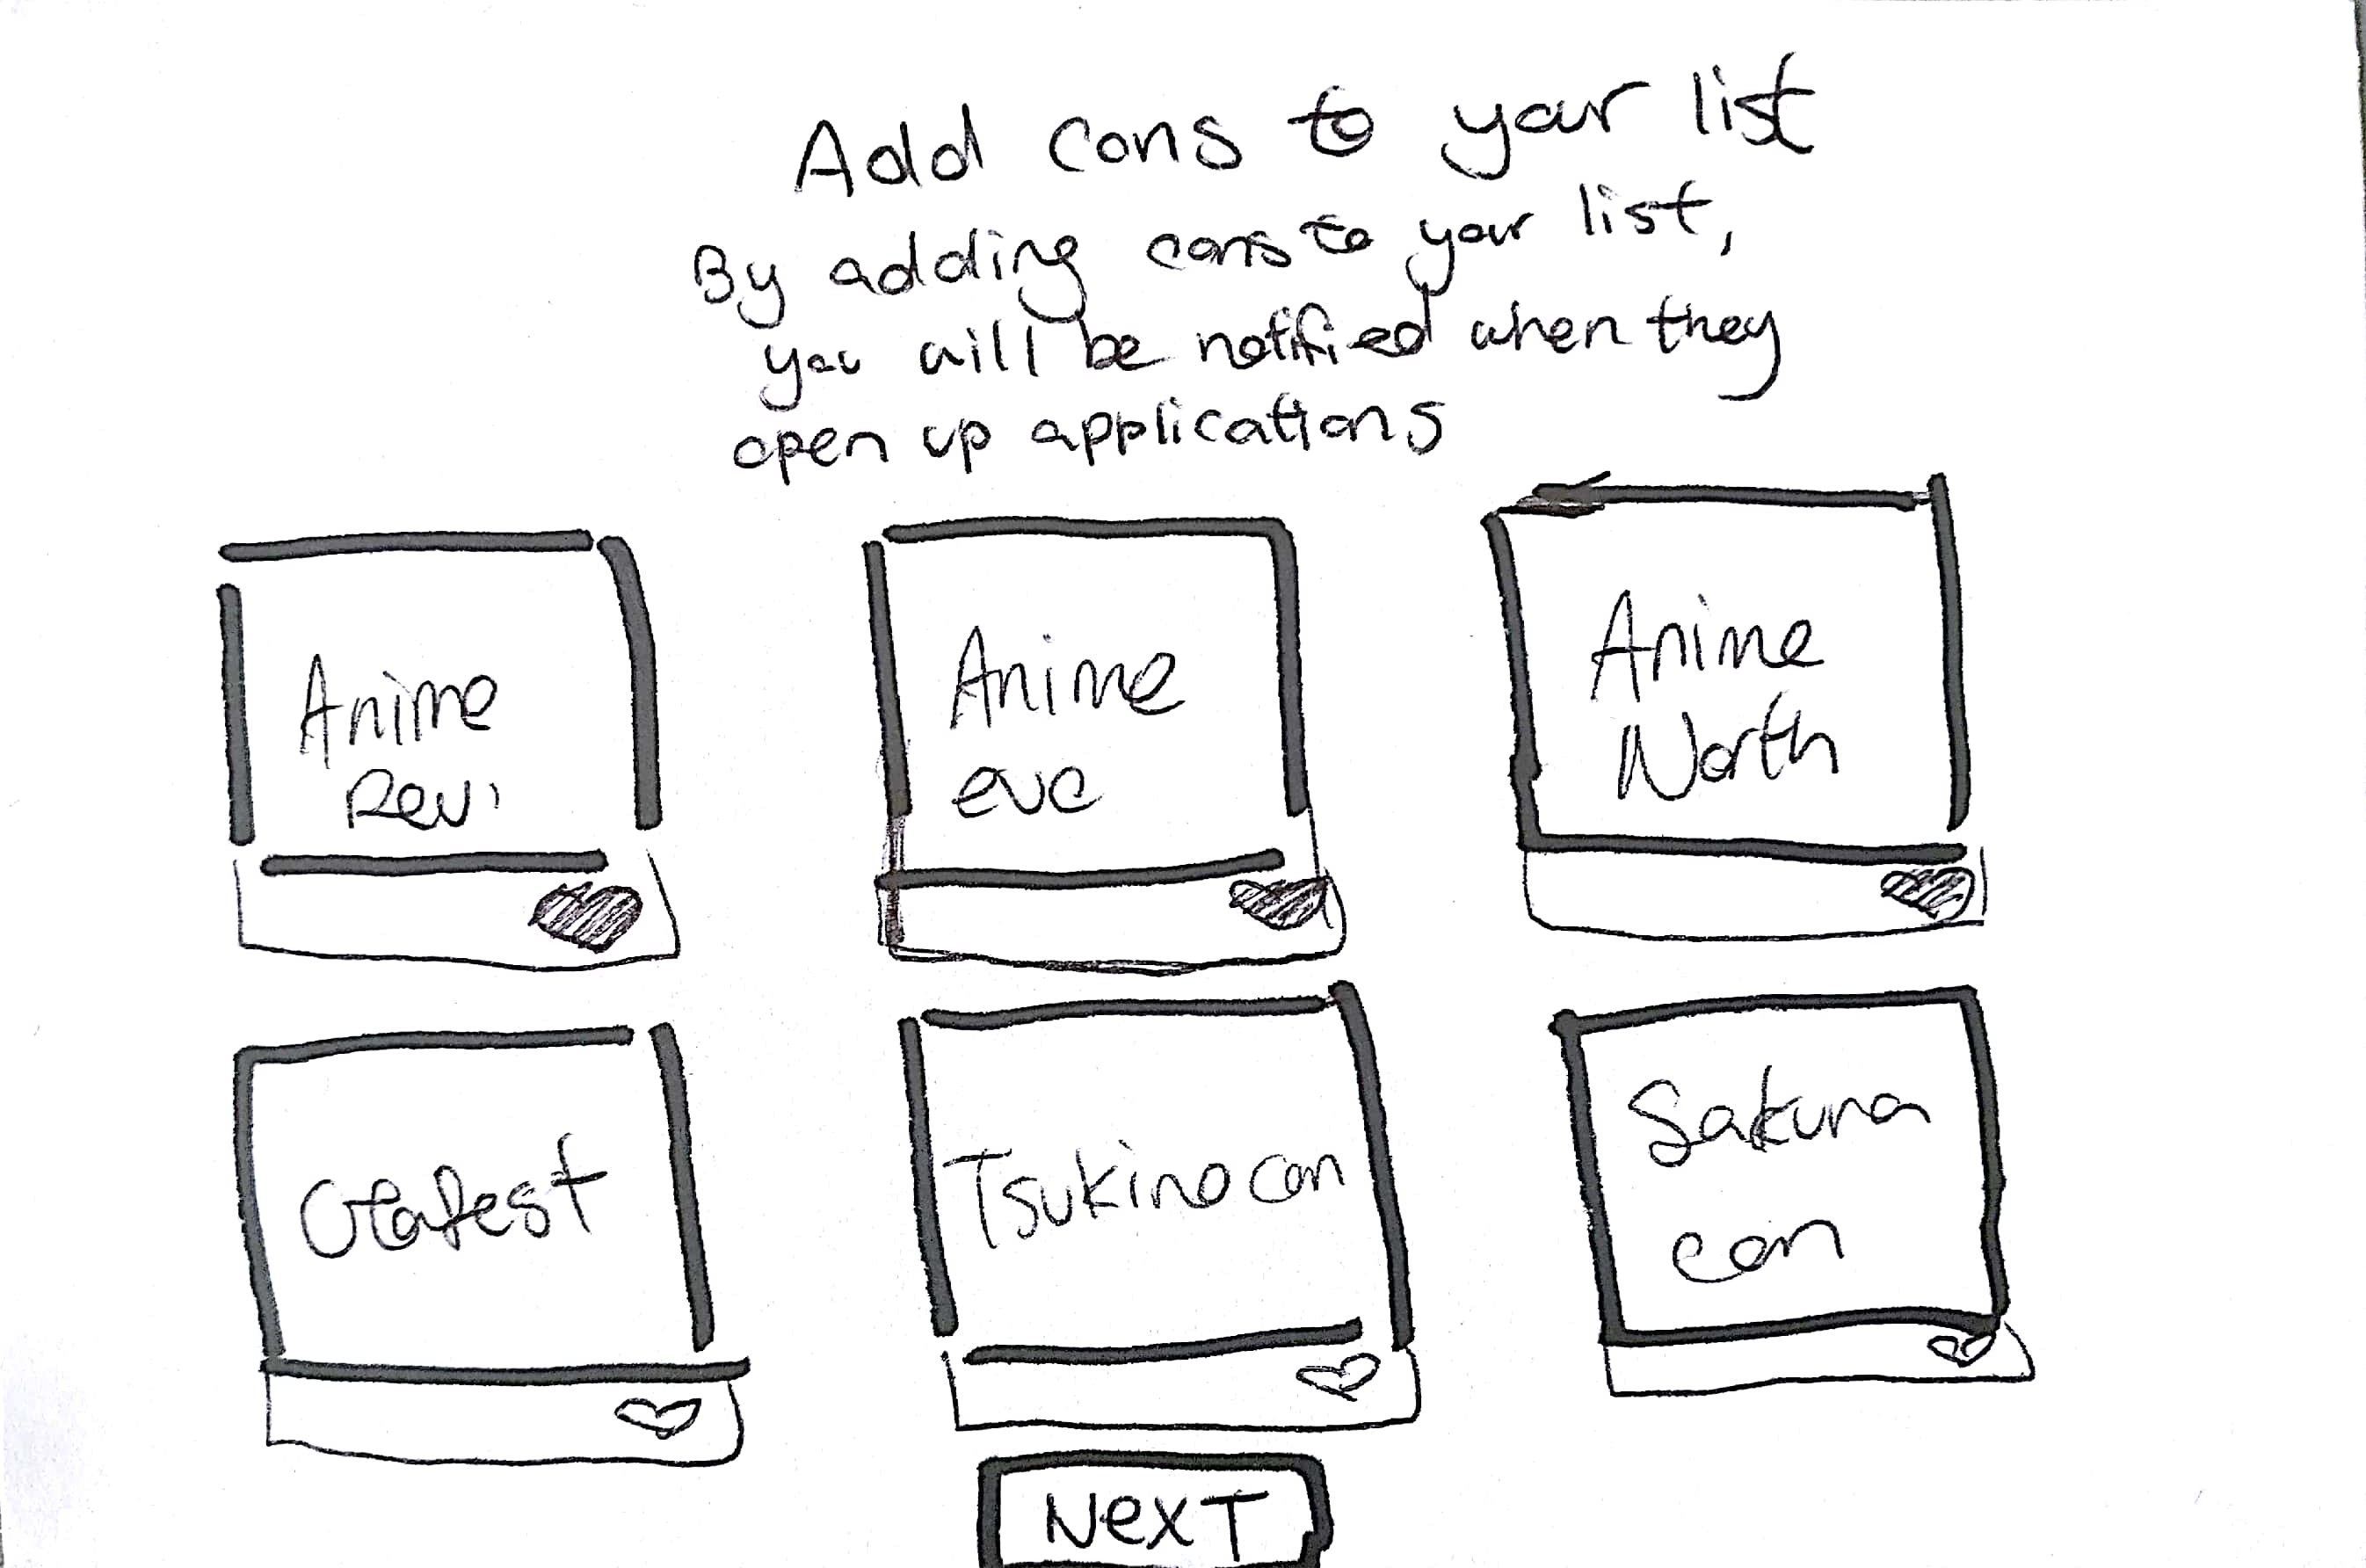 Add cons to your list
By adding cons to your list,
you will be notified when they
open up applications
Anime
Revi
Anime
eve
Anime
North
Otafest
Tsukino con
Sakura
con
NEXT